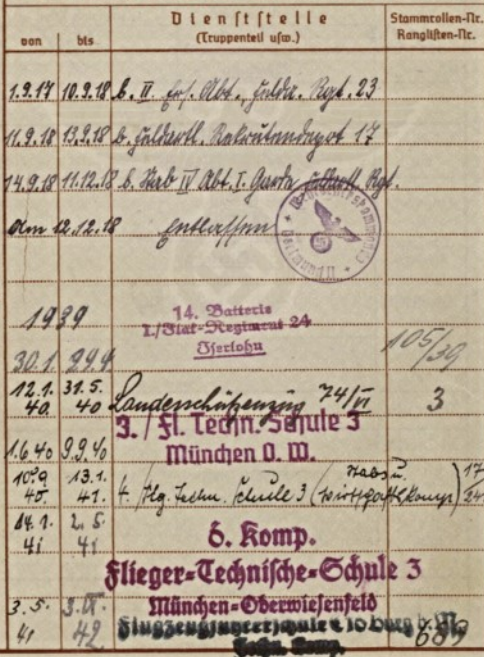 von bis Dienststelle (Truppenteil usw.) Stammrollen-Nr. Ranglisten-Nr.
1.9.17 10.9.18 b. II. Ers. Abt., Felda. Rgt. 23
11.9.18 13.9.18 b. Feldartl. Rekrutendepot 17
14.9.18 11.12.18 b. Stab IV Abt. I. Garde Feldartl. Rgt.
Am 12.12.18 Entlassen
Dortmund II
1939
14. Batterie
I./Flak-Regiment 24
Iserlohn
30.1. 29.4 105/39
12.1. 40. 31.5. 40 Landesschützenzug 74/VI 3
3./Fl. Techn. Schule 3
München O. W.
1.6.40 9.9.40
10.9 40. 13.1. 41. 4. Flg. Techn. Schule 3 (Stabs u. Wirtschaftskomp) 17/24
14.1. 41 2.5. 41
6. Komp.
Flieger-Technische-Schule 3
München-Oberwiesenfeld
3.5. 41 42 689
Techn. Komp.